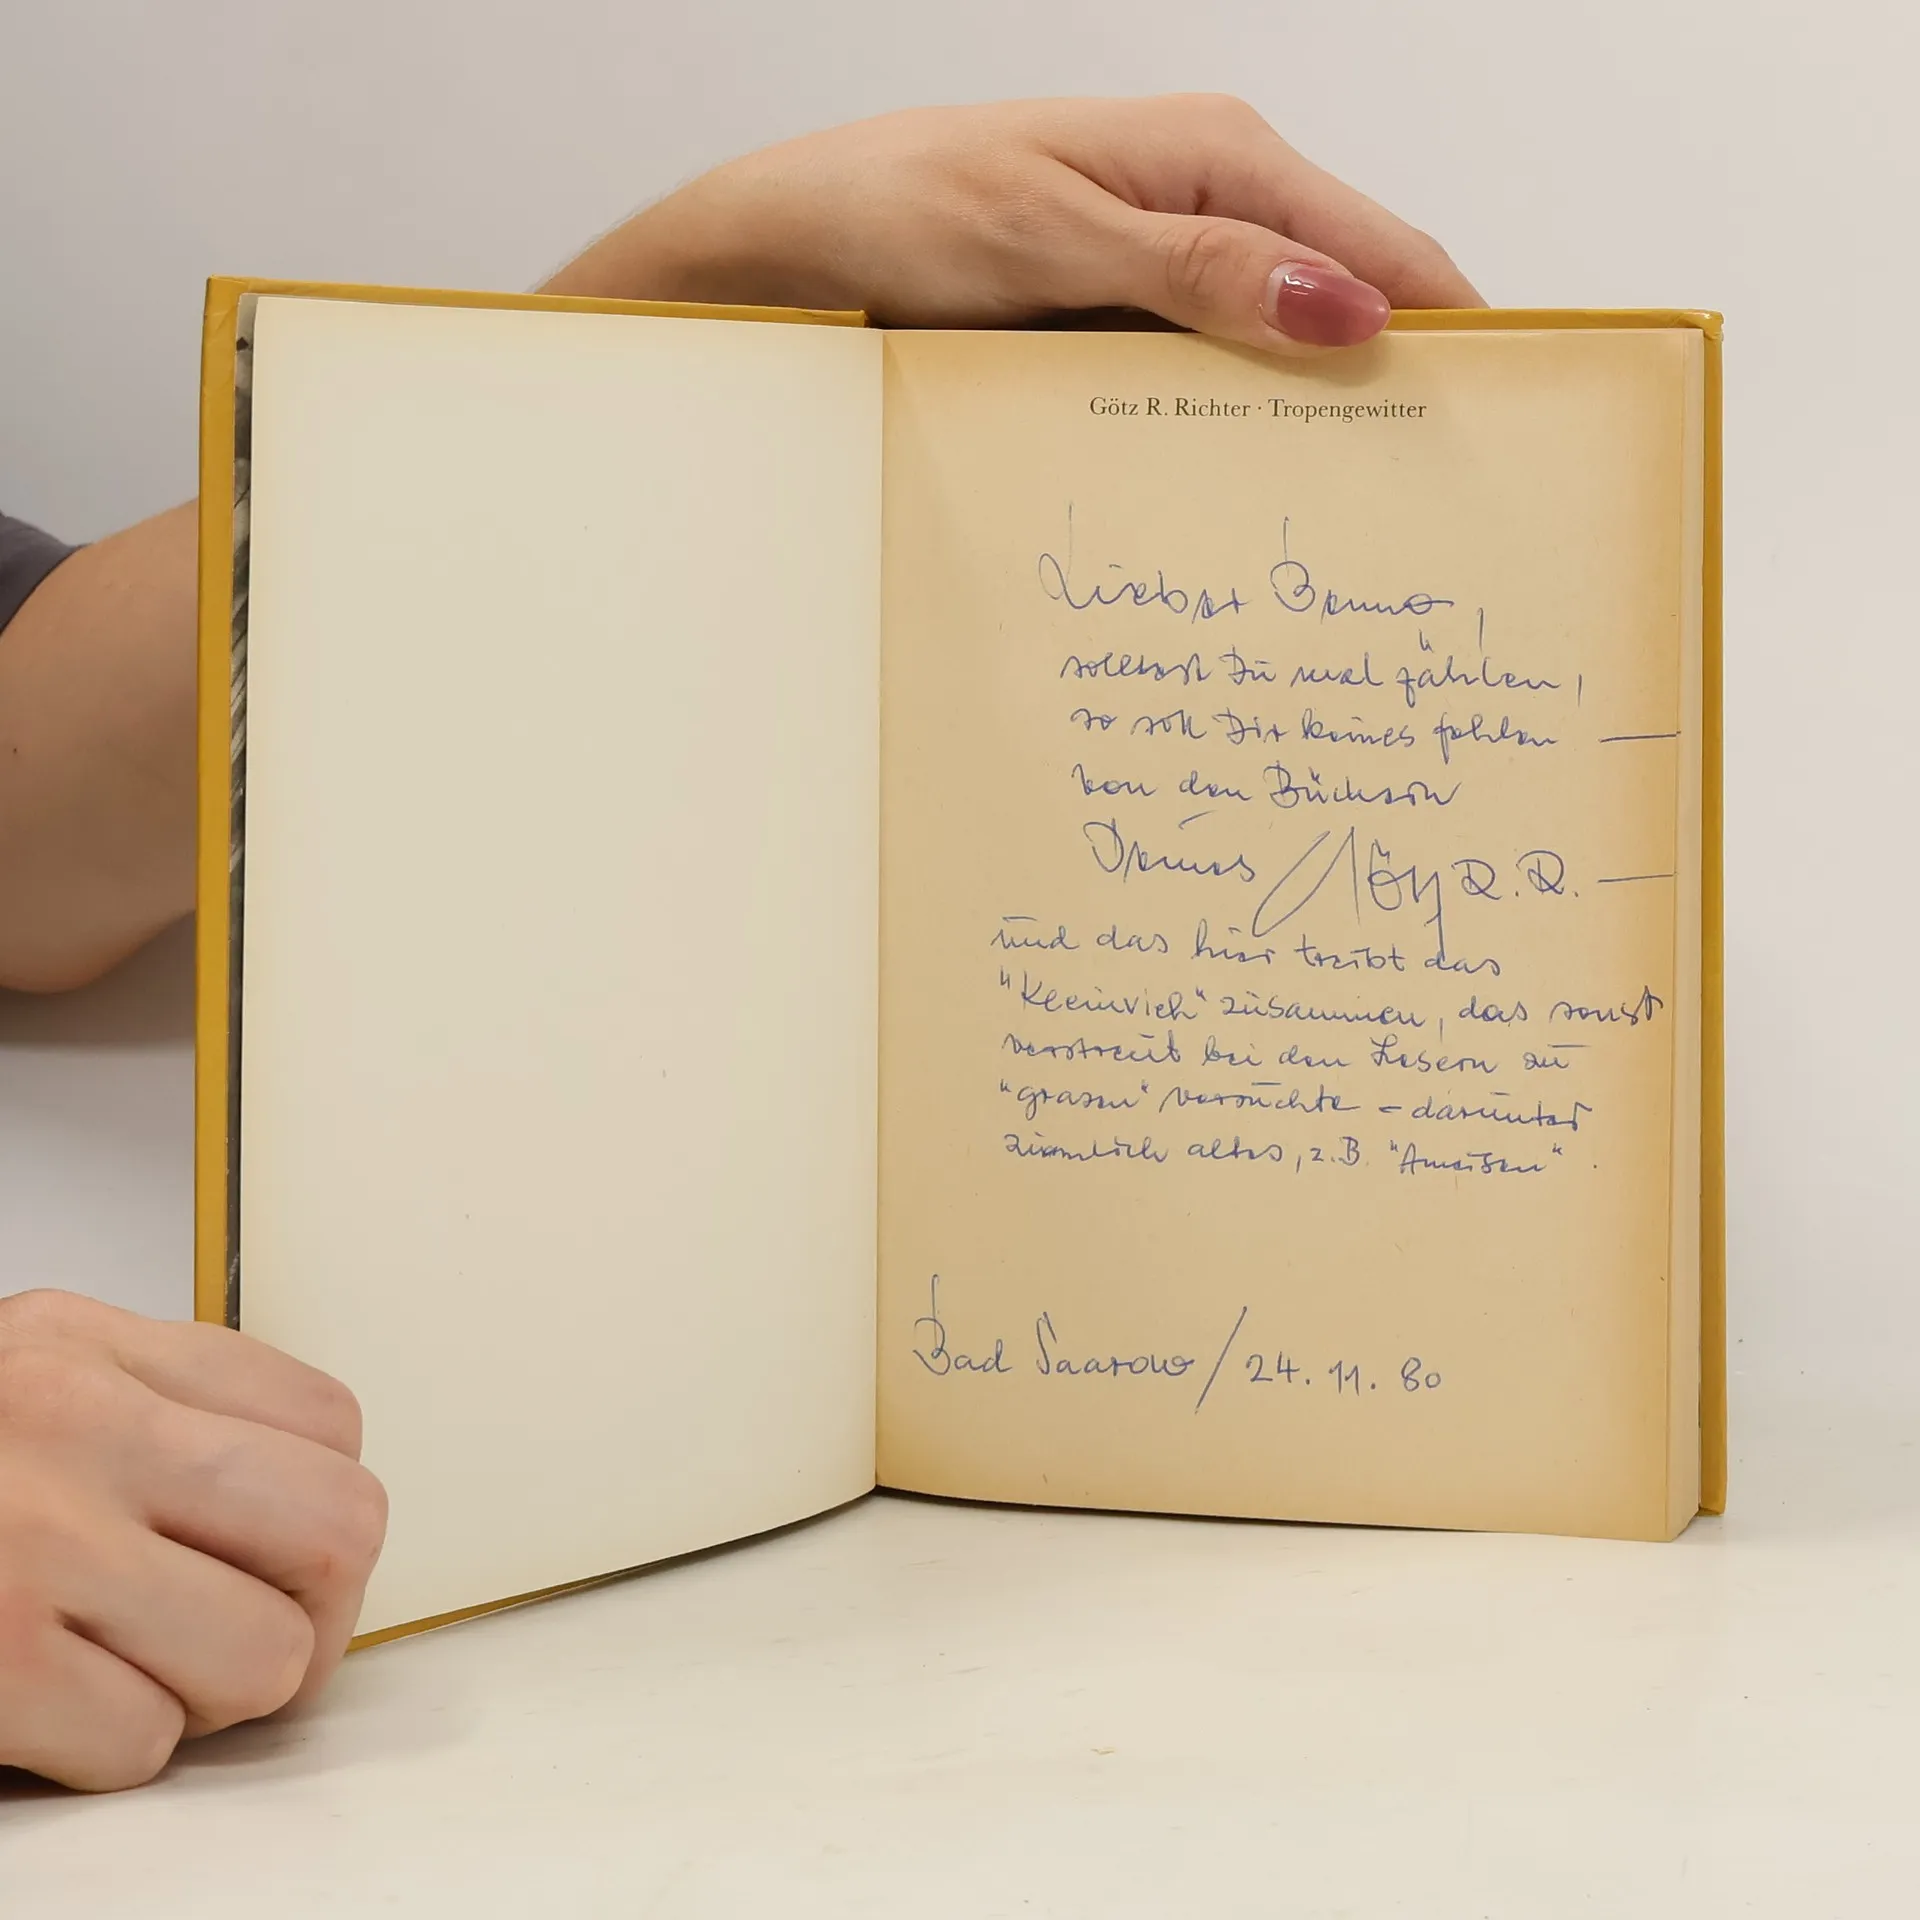 Götz R. Richter · Tropengewitter
Lieber Benno,
solltest Du mal zählen,
so soll Dir keines fehlen —
von den Büchern
Deines Götz R. R. —
und das hier treibt das
"Kleinvieh" zusammen, das sonst
verstreut bei den Lesern zu
"grasen" versuchte – darunter
ziemlich altes, z.B. "Ameisen".
Bad Saarow / 24. 11. 80